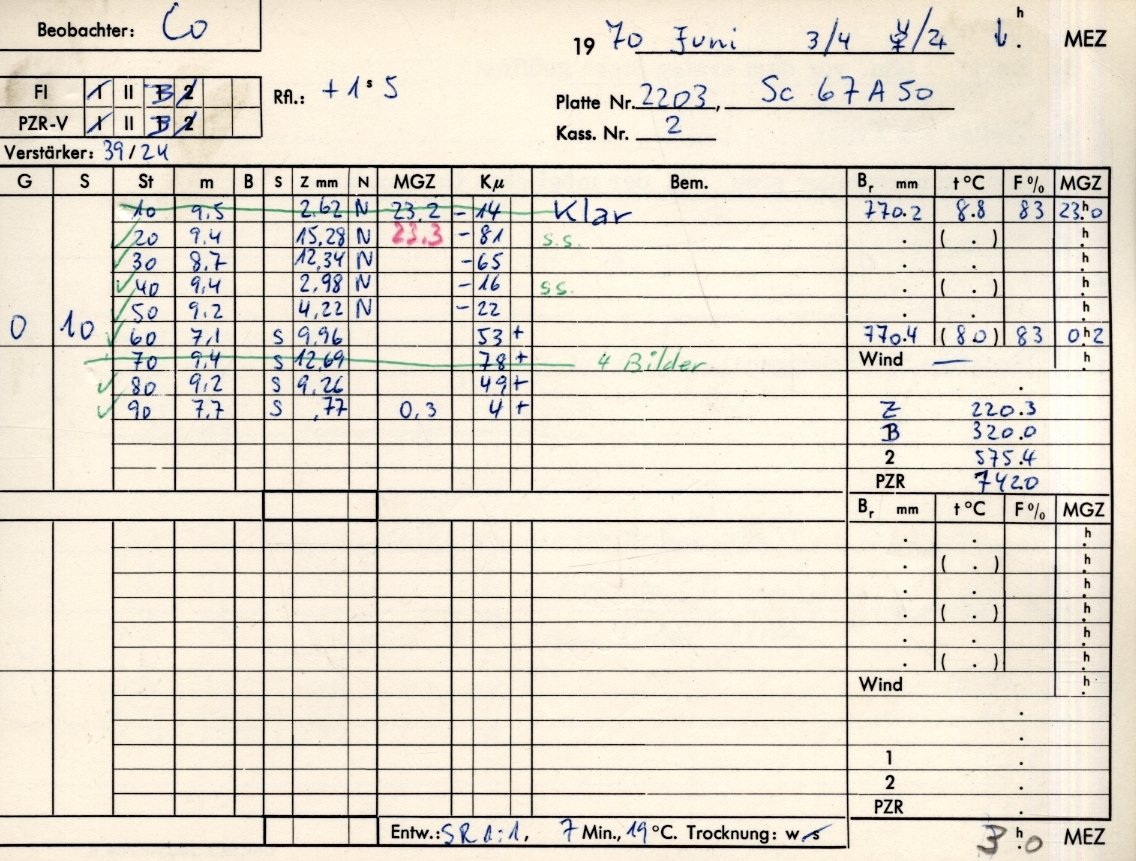 Beobachter: Co
19 70 Juni 3/4 ☿/♃ h . MEZ
FI I II B 2 Rfl.: + 1ˢ 5
Platte Nr. 2203, Sc 67 A 50
PZR-V I II B 2
Kass. Nr. 2
Verstärker: 39/24
G S St m B S Z mm N MGZ Kμ Bem. Bᵣ mm t °C F % MGZ
10 9,5 2.62 N 23,2 - 14 Klar 770.2 8.8 83 23ʰ.0
20 9.4 15,28 N 23.3 - 81 s.s. . ( . ) ʰ.
30 8,7 12,34 N - 65 . . ʰ.
40 9,4 2,98 N - 16 ss. . ( . ) ʰ.
50 9,2 4,22 N - 22 . . ʰ.
0 10 60 7,1 S 9,96 53 + 770.4 (8.0) 83 0ʰ.2
70 9,4 S 12,69 78 + 4 Bilder Wind — ʰ.
80 9,2 S 9,26 49 + .
90 7,7 S ,77 0,3 4 + Z 220.3
B 320.0
2 575.4
PZR 742.0
Bᵣ mm t °C F % MGZ
. . ʰ.
. ( . ) ʰ.
. . ʰ.
. ( . ) ʰ.
. . ʰ.
. ( . ) ʰ.
Wind ʰ.
.
.
1 .
2 .
PZR .
Entw.: SR 1:1, 7 Min., 19 °C. Trocknung: w s 3ʰ.0 MEZ